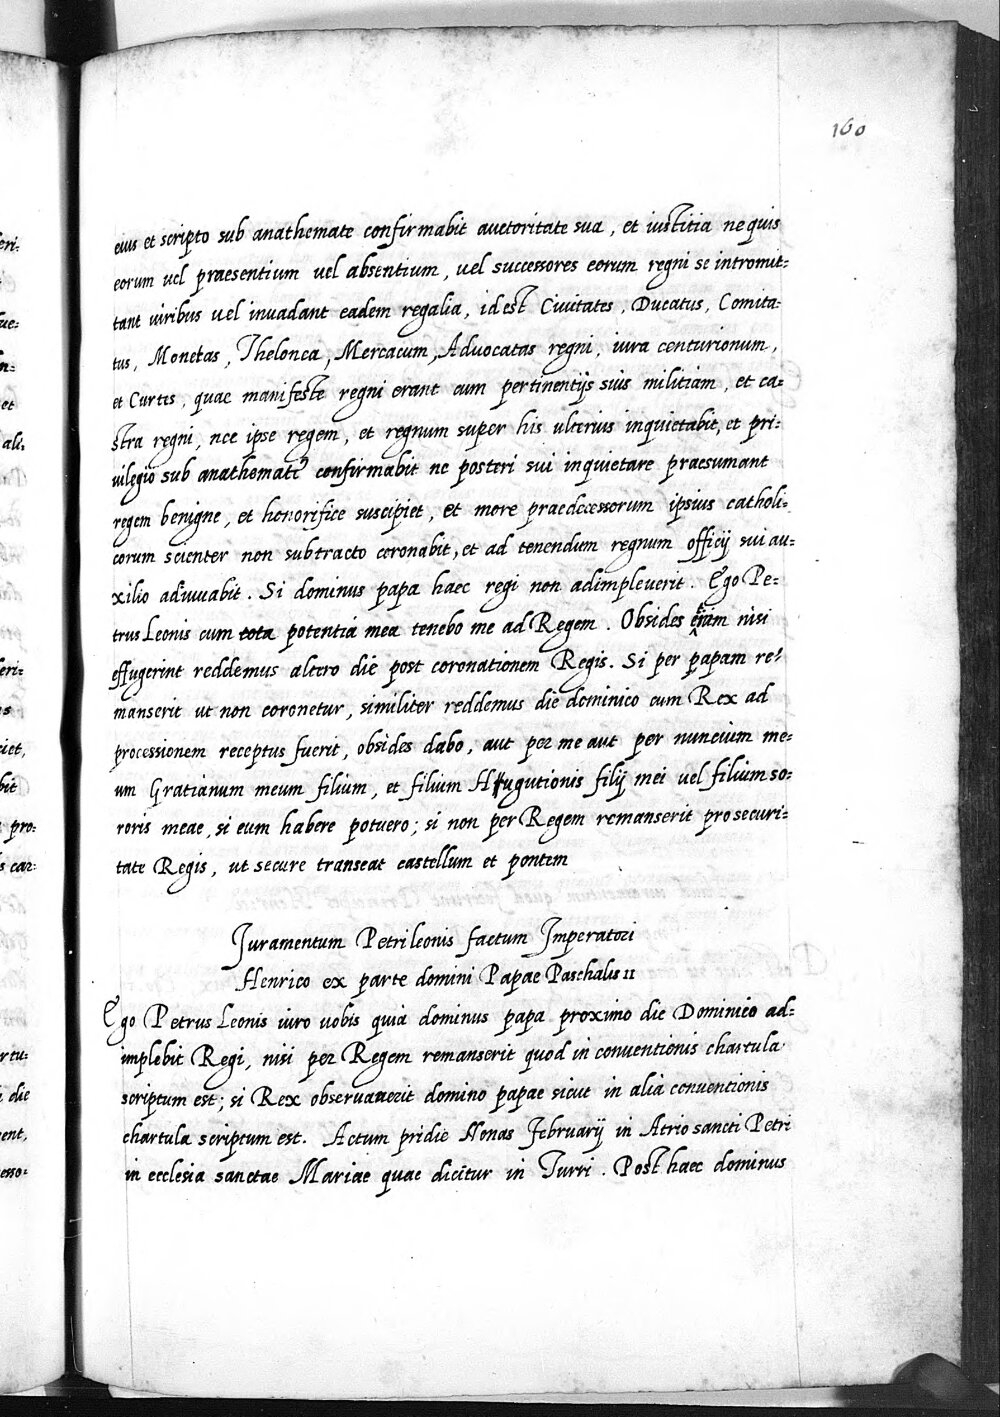 160
eius et scripto sub anathemate confirmabit auctoritate sua, et iustitia ne quis
eorum vel praesentium vel absentium, vel successores eorum regni se intromit=
tant viribus vel invadant eadem regalia, id est Civitates, Ducatus, Comita=
tus, Monetas, Thelonea, Mercacum, Advocatas regni, iura centurionum,
et Curtes, quae manifeste regni erant cum pertinentijs suis militiam, et ca=
stra regni, nec ipse regem, et regnum super his ulterius inquietabit, et pri=
vilegio sub anathemate confirmabit ne posteri sui inquietare praesumant
regem benigne, et honorifice suscipiet, et more praedecessorum ipsius catholi=
corum scienter non subtracto coronabit, et ad tenendum regnum officij sui au=
xilio adiuvabit. Si dominus papa haec regi non adimpleverit. Ego Pe=
trus Leonis cum tota potentia mea tenebo me ad Regem. Obsides etiam nisi
effugerint reddemus altero die post coronationem Regis. Si per papam re=
manserit ut non coronetur, similiter reddemus die dominico cum Rex ad
processionem receptus fuerit, obsides dabo, aut per me aut per nuncium me=
um Gratianum meum filium, et filium Hugutionis filij mei vel filium so=
roris meae, si eum habere potuero; si non per Regem remanserit pro securi=
tate Regis, ut secure transeat castellum et pontem
Juramentum Petrileonis factum Imperatori
Henrico ex parte domini Papae Paschalis II
Ego Petrus Leonis iuro vobis quia dominus papa proximo die Dominico ad=
implebit Regi, nisi per Regem remanserit quod in conventionis chartula
scriptum est; si Rex observaverit domino papae sicut in alia conventionis
chartula scriptum est. Actum pridie Nonas Februarij in Atrio sancti Petri
in ecclesia sanctae Mariae quae dicitur in Turri. Post haec dominus